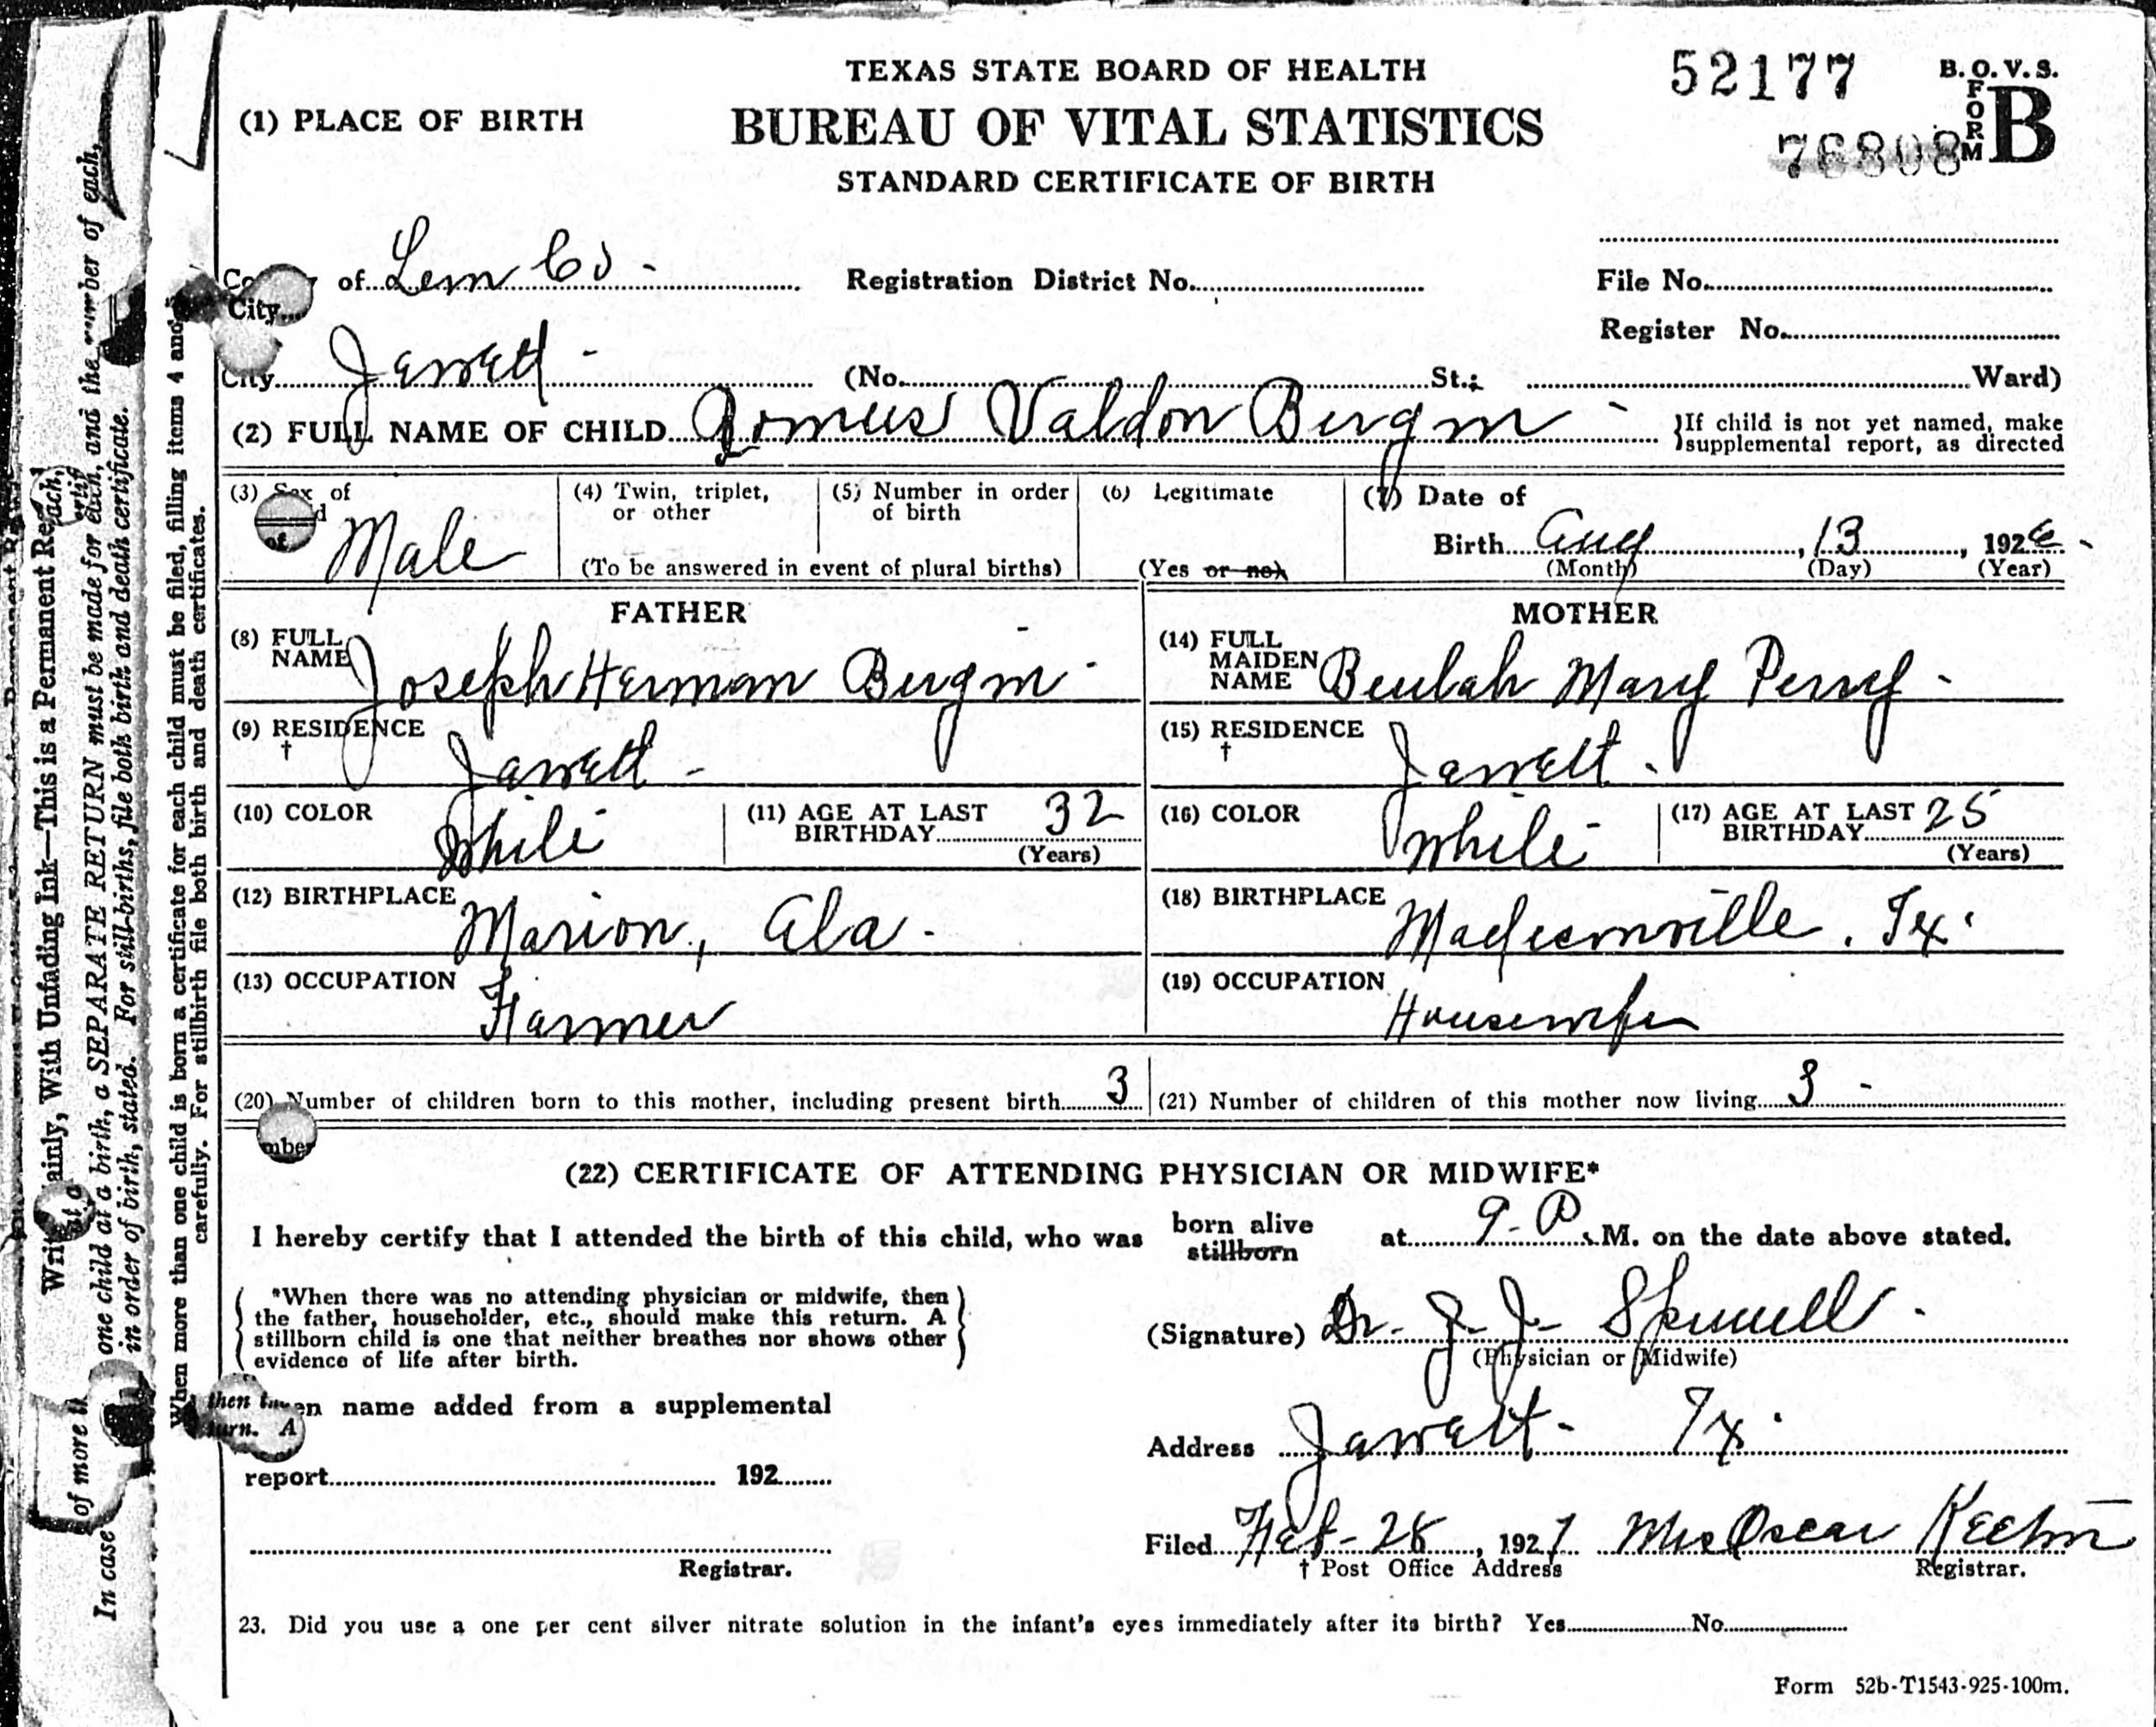 TEXAS STATE BOARD OF HEALTH
52177
B. O. V. S.
FORM B
(1) PLACE OF BIRTH
BUREAU OF VITAL STATISTICS
76808
STANDARD CERTIFICATE OF BIRTH
of Leon Co - Registration District No.
File No.
City
Register No.
City Jewett - (No. St.; Ward)
(2) FULL NAME OF CHILD Valdon }If child is not yet named, make
supplemental report, as directed
(3) Sex of
Male
(4) Twin, triplet,
or other
(5) Number in order
of birth
(To be answered in event of plural births)
(6) Legitimate
(Yes or no)
(7) Date of
Birth Aug, 13, 1926 -
(Month) (Day) (Year)
FATHER
(8) FULL
NAME Joseph Herman
(9) RESIDENCE
† Jewett -
(10) COLOR White
(11) AGE AT LAST
BIRTHDAY 32
(Years)
(12) BIRTHPLACE Marion, Ala -
(13) OCCUPATION Farmer
MOTHER
(14) FULL
MAIDEN
NAME Beulah Mary Perry -
(15) RESIDENCE
† Jewett.
(16) COLOR White -
(17) AGE AT LAST
BIRTHDAY 25
(Years)
(18) BIRTHPLACE Madisonville, Tx.
(19) OCCUPATION Housewife
(20) Number of children born to this mother, including present birth 3
(21) Number of children of this mother now living 3 -
mber
(22) CERTIFICATE OF ATTENDING PHYSICIAN OR MIDWIFE*
I hereby certify that I attended the birth of this child, who was born alive
stillborn at 9 - P. M. on the date above stated.
*When there was no attending physician or midwife, then
the father, householder, etc., should make this return. A
stillborn child is one that neither breathes nor shows other
evidence of life after birth.
(Signature) Dr. J. J.
(Physician or Midwife)
name added from a supplemental
report 192
Address Jewett - Tx.
Filed Feb - 28, 1927 Mrs Oscar Keehn
† Post Office Address
Registrar.
Registrar.
23. Did you use a one per cent silver nitrate solution in the infant's eyes immediately after its birth? Yes No
Form 52b-T1543-925-100m.
ainly, With Unfading Ink—This is a Permanent
one child at a birth, a SEPARATE RETURN must be made for each, and the number of each,
in order of birth, stated. For still-births, file both birth and death certificate.
When more than one child is born a certificate for each child must be filed, filling items 4 and
carefully. For stillbirth file both birth and death certificates.
In case of more